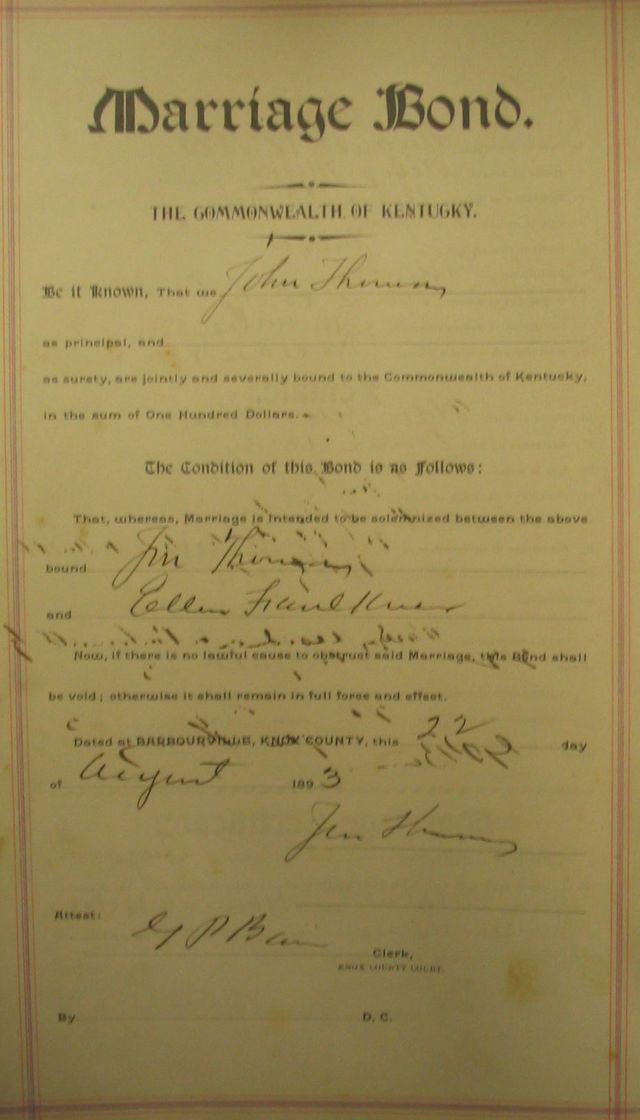 Marriage Bond.
THE COMMONWEALTH OF KENTUCKY.
Be it Known, That we John
as principal, and
as surety, are jointly and severally bound to the Commonwealth of Kentucky,
in the sum of One Hundred Dollars.
The Condition of this Bond is as Follows:
That, whereas, Marriage is intended to be solemnized between the above
bound
and Ellen Faulkner
Now, if there is no lawful cause to obstruct said Marriage, this Bond shall
be void; otherwise it shall remain in full force and effect.
Dated at BARBOURVILLE, KNOX COUNTY, this 22 day
of August 1893
Attest:
Clerk,
KNOX COUNTY COURT.
By D. C.